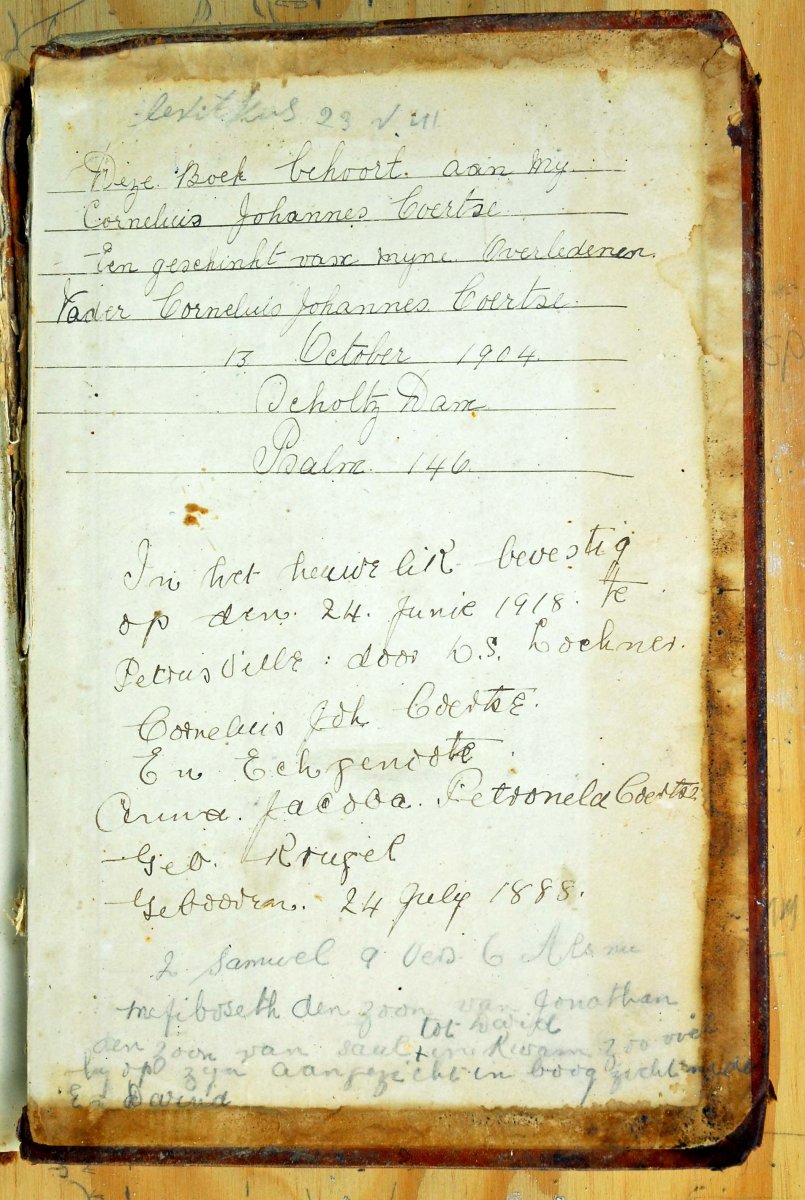 Levitikus 23 v 41
Deze Boek behoort aan My.
Corneluis Johannes Coertse
Een geschinkt van myne Overledenen.
Vader Corneluis Johannes Coertse.
13 October 1904.
Scholtz Dam
Psalm 146.
In het heuwelik bevestig
op den. 24. Junie 1918. te
Petrusville : door D.S. Lochner.
Corneluis Joh Coertse.
En Echgenoote
Anna. Jacoba. Petronela Coertse
Geb. Krugel
Gebooren. 24 July 1888.
2 Samuel 9 Vers 6 Als nu
mefiboseth den zoon van Jonathan
tot David
den zoon van saul in Kwam zoo viel
hy op zyn aangezicht in boog zicht
En David